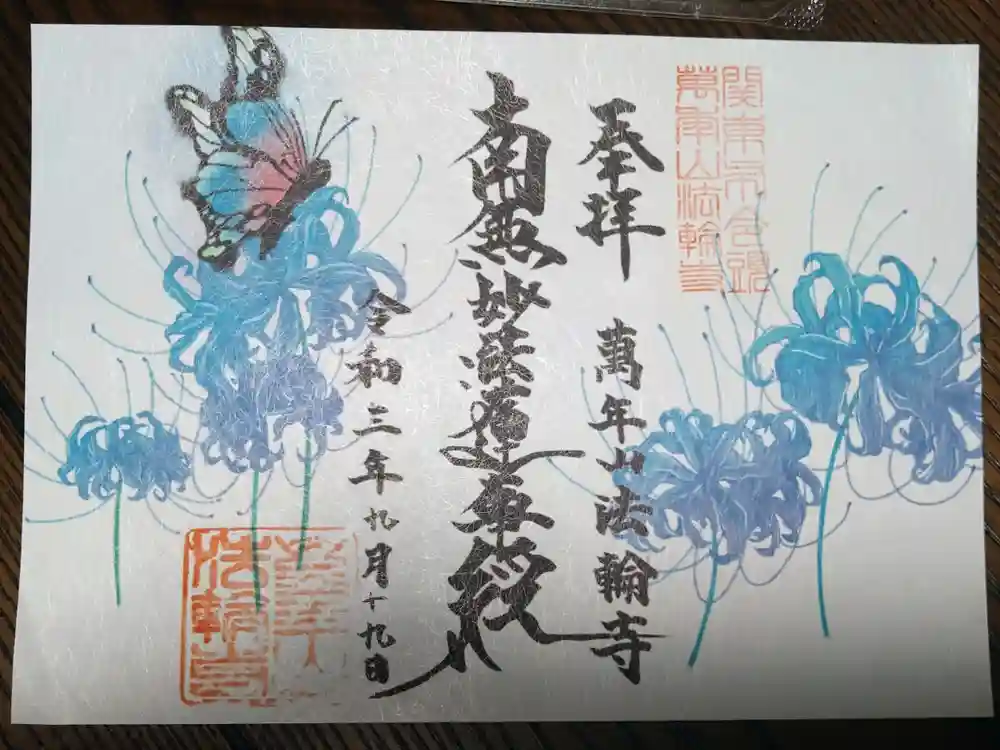 関東
萬年山法輪寺
奉拝
萬年山法輪寺
南無妙法蓮華経
令和三年九月十九日
萬年山
法輪寺